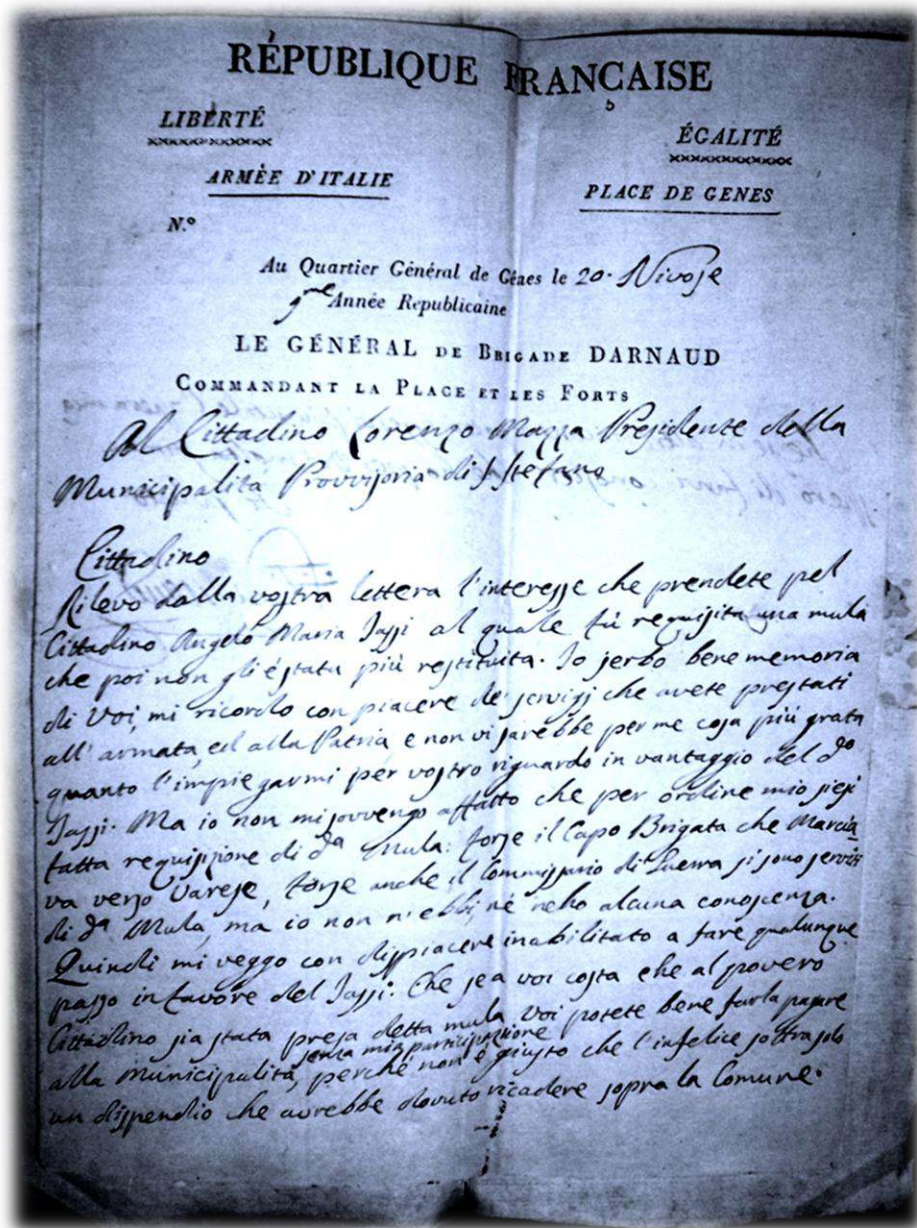 RÉPUBLIQUE FRANÇAISE
LIBERTÉ
ÉGALITÉ
ARMÉE D'ITALIE
PLACE DE GENES
N.º
Au Quartier Général de Gênes le 20. Nivose
9me Année Republicaine
LE GÉNÉRAL DE BRIGADE DARNAUD
COMMANDANT LA PLACE ET LES FORTS
Al Cittadino Lorenzo Mazza Presidente della
Municipalità Provvisoria di S Stefano
Cittadino
Rilevo dalla vostra lettera l'interesse che prendete pel
Cittadino Angelo Maria Tassi al quale fù requisita una mula
che poi non gli è stata più restituita. Io serbo bene memoria
di Voi, mi ricordo con piacere de' servigj che avete prestati
all'armata, ed alla Patria, e non vi sarebbe per me cosa più grata
quanto l'impiegarmi per vostro riguardo in vantaggio del do
Tassi. Ma io non mi sovvengo affatto che per ordine mio siesi
fatta requisizione di da Mula: forse il Capo Brigata che Marcia
va verso Varese, forse anche il Commissario di Guerra si sono serviti
di da Mula, ma io non n'ebbi, nè ne ho alcuna conoscenza.
Quindi mi veggo con dispiacere inabilitato a fare qualunque
passo in favore del Tassi: Che se a voi costa che al povero
Cittadino sia stata presa detta mula voi potete bene farla pagare
senza mia participazione
alla Municipalità, perchè non è giusto che l'infelice soffra solo
un dispendio che avrebbe dovuto ricadere sopra la Comune.